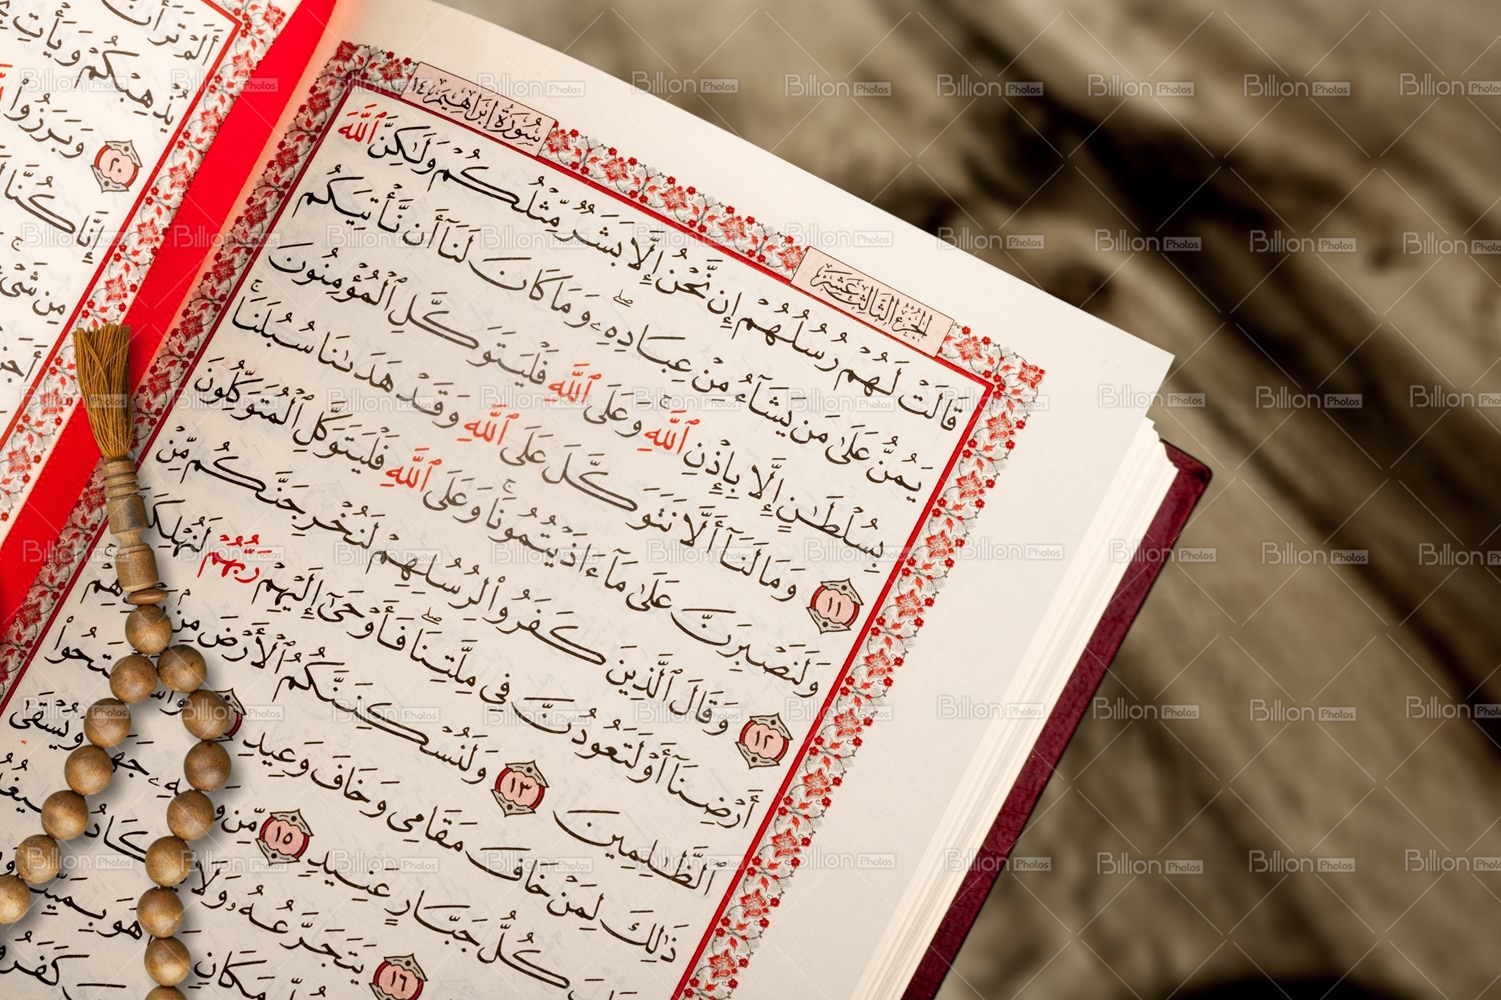 سُورَةُ إِبْرَاهِيمَ ١٤
الجُزْءُ الثَّالِثَ عَشَرَ
قَالَتْ لَهُمْ رُسُلُهُمْ إِن نَّحْنُ إِلَّا بَشَرٌ مِّثْلُكُمْ وَلَٰكِنَّ ٱللَّهَ
يَمُنُّ عَلَىٰ مَن يَشَآءُ مِنْ عِبَادِهِۦ ۖ وَمَا كَانَ لَنَآ أَن نَّأْتِيَكُم
بِسُلْطَٰنٍ إِلَّا بِإِذْنِ ٱللَّهِ ۚ وَعَلَى ٱللَّهِ فَلْيَتَوَكَّلِ ٱلْمُؤْمِنُونَ
١١ وَمَا لَنَآ أَلَّا نَتَوَكَّلَ عَلَى ٱللَّهِ وَقَدْ هَدَىٰنَا سُبُلَنَا ۚ
وَلَنَصْبِرَنَّ عَلَىٰ مَآ ءَاذَيْتُمُونَا ۚ وَعَلَى ٱللَّهِ فَلْيَتَوَكَّلِ ٱلْمُتَوَكِّلُونَ
١٢ وَقَالَ ٱلَّذِينَ كَفَرُوا۟ لِرُسُلِهِمْ لَنُخْرِجَنَّكُم مِّنْ
أَرْضِنَآ أَوْ لَتَعُودُنَّ فِى مِلَّتِنَا ۖ فَأَوْحَىٰٓ إِلَيْهِمْ رَبُّهُمْ لَنُهْلِكَ
ٱلظَّٰلِمِينَ ١٣ وَلَنُسْكِنَنَّكُمُ ٱلْأَرْضَ مِنۢ
ذَٰلِكَ لِمَنْ خَافَ مَقَامِى وَخَافَ وَعِيدِ
كُلُّ جَبَّارٍ عَنِيدٍ ١٥ مِّن وَيُسْقَىٰ
يَتَجَرَّعُهُۥ وَلَا كَادُ
١٦
مَكَانٍ هُوَ بِمَيِّتٍ
كَفَرُوا۟
أَلَمْ تَرَ أَنَّ
يُذْهِبْكُمْ وَيَأْتِ
٢٠ وَبَرَزُوا۟
إِنَّا كُنَّا
مِن شَىْءٍ
Billion Photos